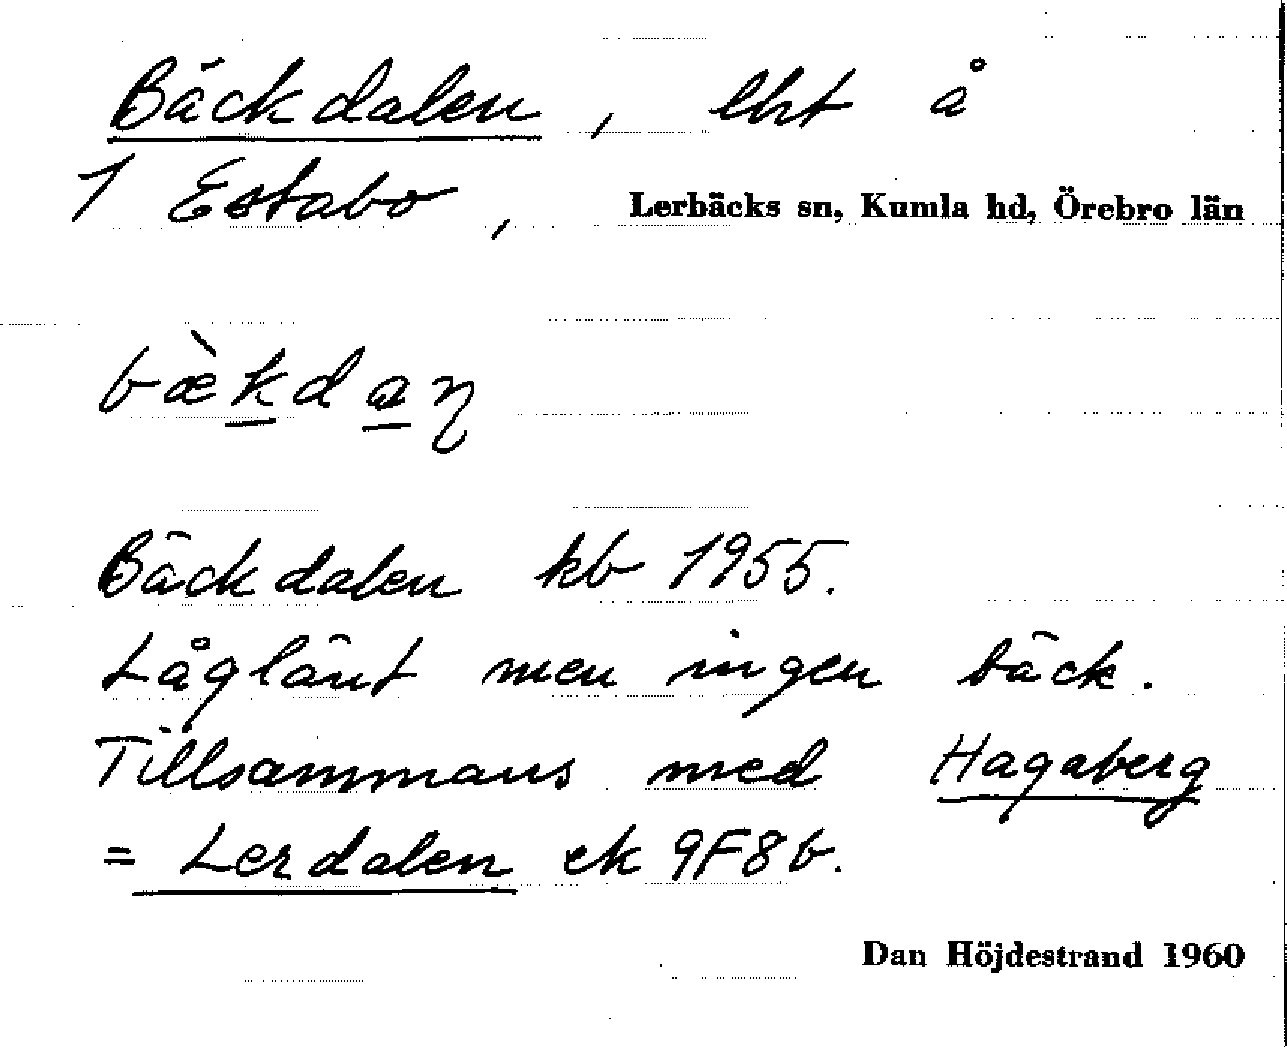 Bäckdalen, lht å
1 Estabo, Lerbäcks sn, Kumla hd, Örebro län
bæ̀kdaη
Bäckdalen kb 1955.
Låglänt men ingen bäck.
Tillsammans med Hagaberg
= Lerdalen ek 9F8b.
Dan Höjdestrand 1960